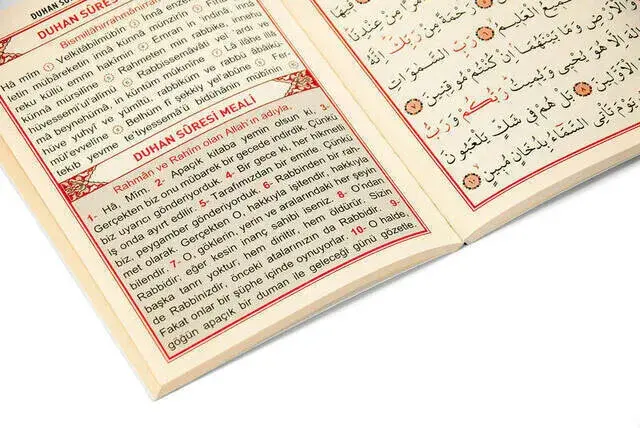 DUHAN SÛRESİ
DUHAN SÛRESİ
Bismillâhirrahmânirrahîm
Hâ mîm ① Velkitâbilmübîn ② İnnâ enzelnâhü fî
letim mübâreketin innâ künnâ münzirîn ③ Fîhâ
reku küllü emrin hakîmin ④ Emran in 'indinâ, innâ
künnâ mürsilîne ⑤ Rahmeten min rabbike, inneh
hüvessemî'ul'alîmü ⑥ Rabbissemâvâti vel'ardı
mâ beynehümâ, in küntüm mûkınîne ⑦ Lâ ilâhe illâ
hüve yuhyî ve yümîtü, rabbüküm ve rabbü âbâikü-
mül'evvelîne ⑧ Belhüm fî şekkiy yel'abûne ⑨ Fer-
tekıb yevme te'tiyessemâü bidühânin mübînin ⑩
DUHAN SÛRESİ MEALİ
Rahmân ve Rahîm olan Allah'ın adıyla,
1- Hâ, Mîm. 2- Apaçık kitaba yemin olsun ki, 3-
Gerçekten biz onu mübarek bir gecede indirdik. Çünkü
biz uyarıcı gönderiyorduk. 4- Bir gece ki, her hikmetli
iş onda ayırt edilir. 5- Tarafımızdan bir emirle. Çünkü
biz, peygamber gönderiyorduk. 6- Rabbinden bir rah-
met olarak. Gerçekten O, hakkıyla işilendir, hakkıyla
bilendir. 7- O, göklerin, yerin ve aralarındaki her şeyin
Rabbidir; eğer kesin inanç sahibi iseniz. 8- O'ndan
başka tanrı yoktur, hem diriltir, hem öldürür. Sizin
de Rabbinizdir, önceki atalarınızın da Rabbidir. 9-
Fakat onlar bir şüphe içinde oynuyorlar. 10- O halde,
göğün apaçık bir duman ile geleceği günü gözetle.
فِيهَا
اَمْرًا مِنْ عِنْدِنَا
رَحْمَةً مِنْ رَبِّكَ اِنَّهُ
الْعَلِيمُ ٦ رَبِّ السَّمٰوَاتِ
وَالْاَرْضِ وَمَا بَيْنَهُمَا اِنْ كُنْتُمْ مُوقِنِينَ ٧
اِلٰهَ اِلَّا هُوَ يُحْيِى وَيُمِيتُ رَبُّكُمْ وَرَبُّ
الْاَوَّلِينَ ٨ بَلْ هُمْ فِى شَكٍّ يَلْعَبُونَ
يَوْمَ تَأْتِى السَّمَاءُ بِدُخَانٍ مُبِينٍ ١٠